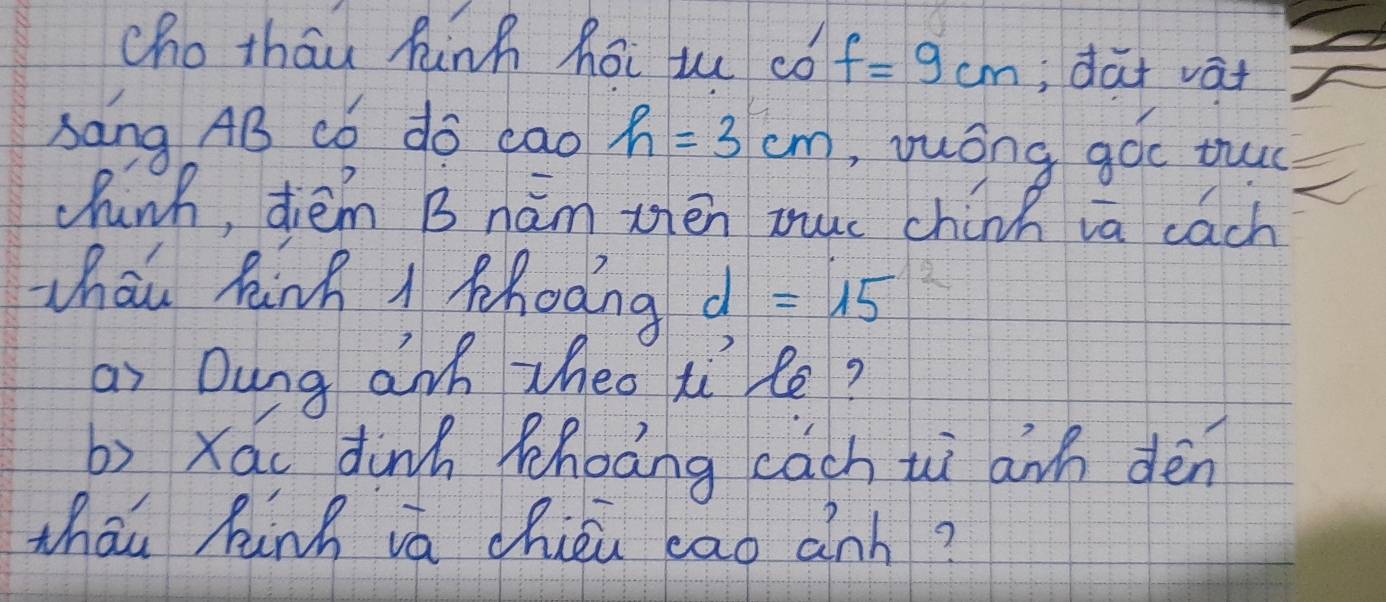 Cho thấu kính hội tụ có f = 9 cm; đặt vật
sáng AB có độ cao h = 3 cm, vuông góc trục
chính, điểm B nằm trên trục chính và cách
thấu kính 1 khoảng d = 15
a> Dựng ảnh theo tỉ lệ?
b> Xác định khoảng cách từ ảnh đến
thấu kính và chiều cao ảnh?